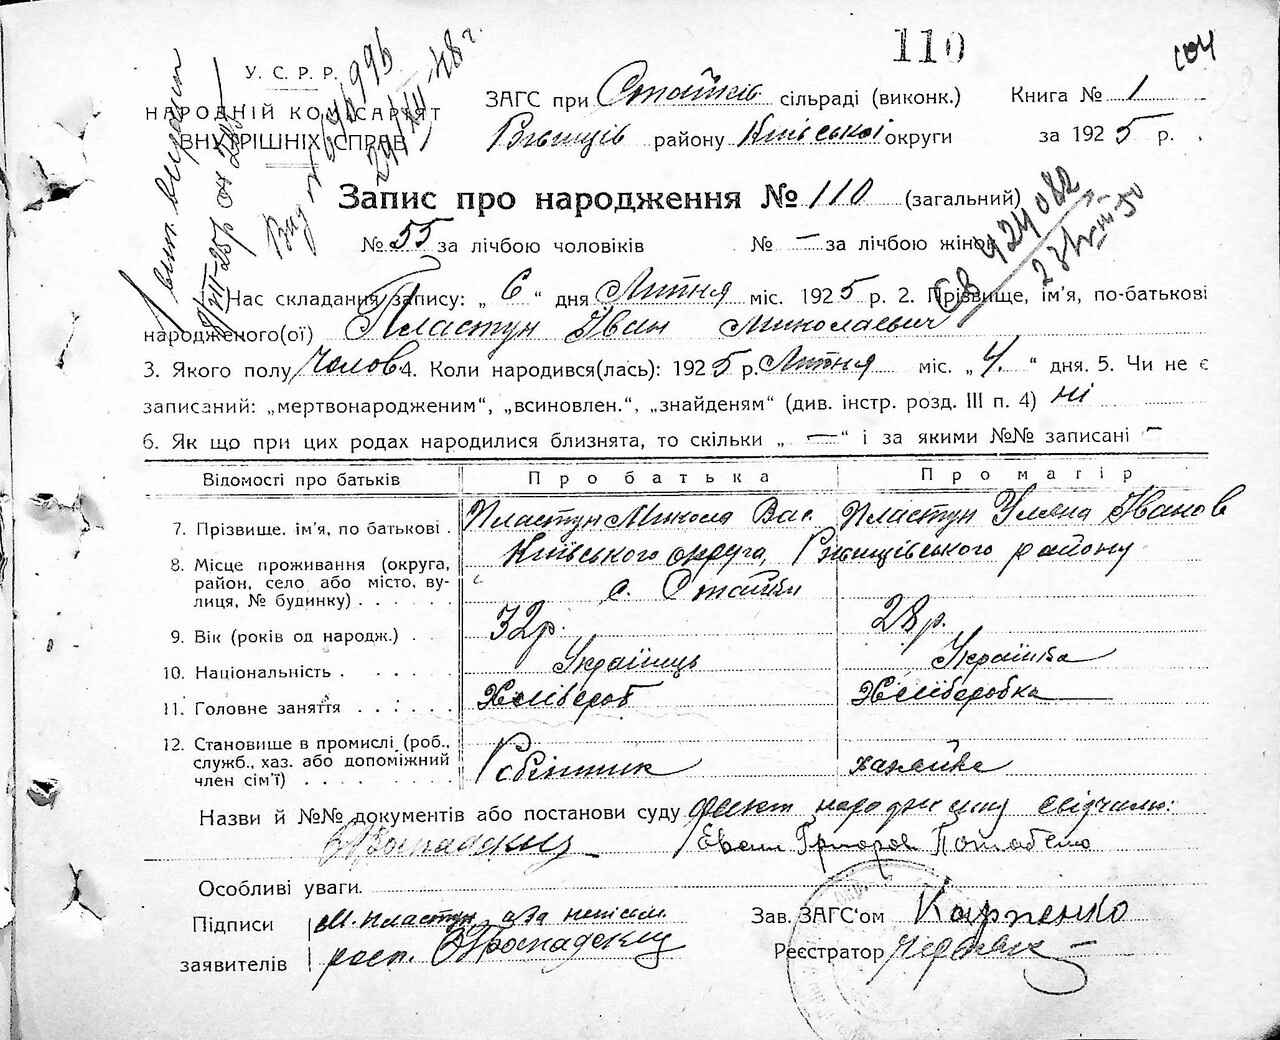 110
104
У. С. Р. Р.
НАРОДНІЙ КОМІСАРІЯТ
ВНУТРІШНІХ СПРАВ
ЗАГС при Стайків сільраді (виконк.) Книга № 1
району Київської округи за 1925 р.
Запис про народження № 110 (загальний)
№ 55 за лічбою чоловіків № — за лічбою жінок
424082
Час складання запису: „ 6 “ дня Лютня міс. 1925 р. 2. Прізвище, ім'я, по-батькові
народженого(ої) Пластун Іван Миколаевич
3. Якого полу Чолов 4. Коли народився(лась): 1925 р. Лютня міс. „ 4. “ дня. 5. Чи не є
записаний: „мертвонародженим“, „всиновлен.“, „знайденям“ (див. інстр. розд. III п. 4) ні
6. Як що при цих родах народилися близнята, то скільки „ — “ і за якими №№ записані —
Відомості про батьків Про батька Про матір
7. Прізвище, ім'я, по батькові . Пластун Микола Вас. Пластун Уляна Іванов
8. Місце проживання (округа, район, село або місто, вулиця, № будинку) . . . . . . Київського округа, Ржищівського району
с. Стайки
9. Вік (років од народж.) . . 32 р. 28 р.
10. Національність . . . . . Українець Українка
11. Головне заняття . . . . . Хлібороб Хліборобка
12. Становище в промислі (роб., служб., хаз. або допоміжний член сім'ї) . . . . . . . Робітник хазяйка
Назви й №№ документів або постанови суду факт народження свідчили:
Евген Григоров
Особливі уваги.
Підписи М. Пластун а за неписм.
заявителів росп.
Зав. ЗАГС'ом Карпенко
Реєстратор